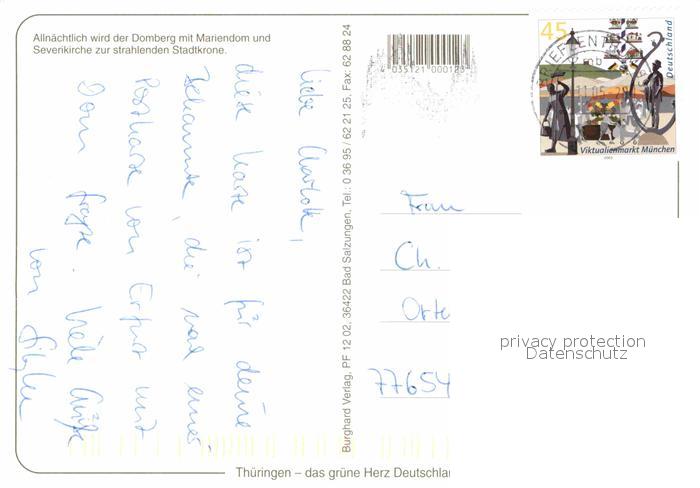 Allnächtlich wird der Domberg mit Mariendom und
Severikirche zur strahlenden Stadtkrone.
Liebe Charlotte,
diese Karte ist für deine
Bekannte, die mal eine
Postkarte vom Erfurt mit
Dom fragte. Viele Grüße
von
Burghard Verlag, PF 12 02, 36422 Bad Salzungen, Tel.: 0 36 95 / 62 21 25, Fax: 62 88 24
035121 000123
45
Deutschland
BRIEFZENTRUM
mb
Viktualienmarkt München
2003
Frau
Ch.
Orte
77654
privacy protection
Datenschutz
Thüringen – das grüne Herz Deutschla